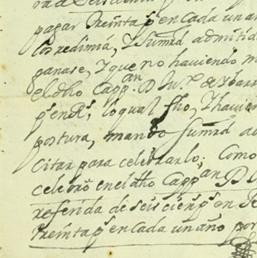 pagar treinta ps en cada un añ
los redimia, y su md admitid
ganase, y que no haviendo m
el dho Cappan D Ju
ps en Rs, lo qual fho, y havien
postura, mando su md
citar para celebrarlo, Como
celebró en el dho Cappan D
referida de seiscientos ps en Re
treinta ps en cada un año por